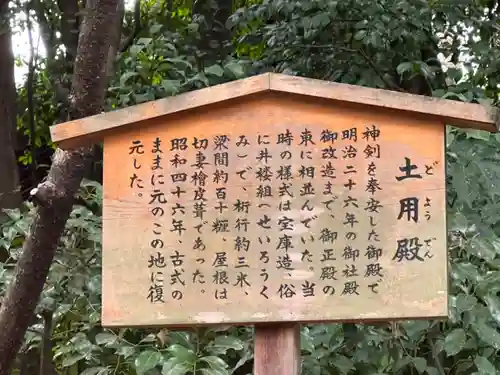 土用殿
どようでん
神剣を奉安した御殿で
明治二十六年の御社殿
御改造まで、御正殿の
東に相並んでいた。当
時の様式は宝庫造、俗
に井楼組(せいろうく
み)で、桁行約三米、
梁間約百十糎、屋根は
切妻檜皮葺であった。
昭和四十六年、古式の
ままに元のこの地に復
元した。